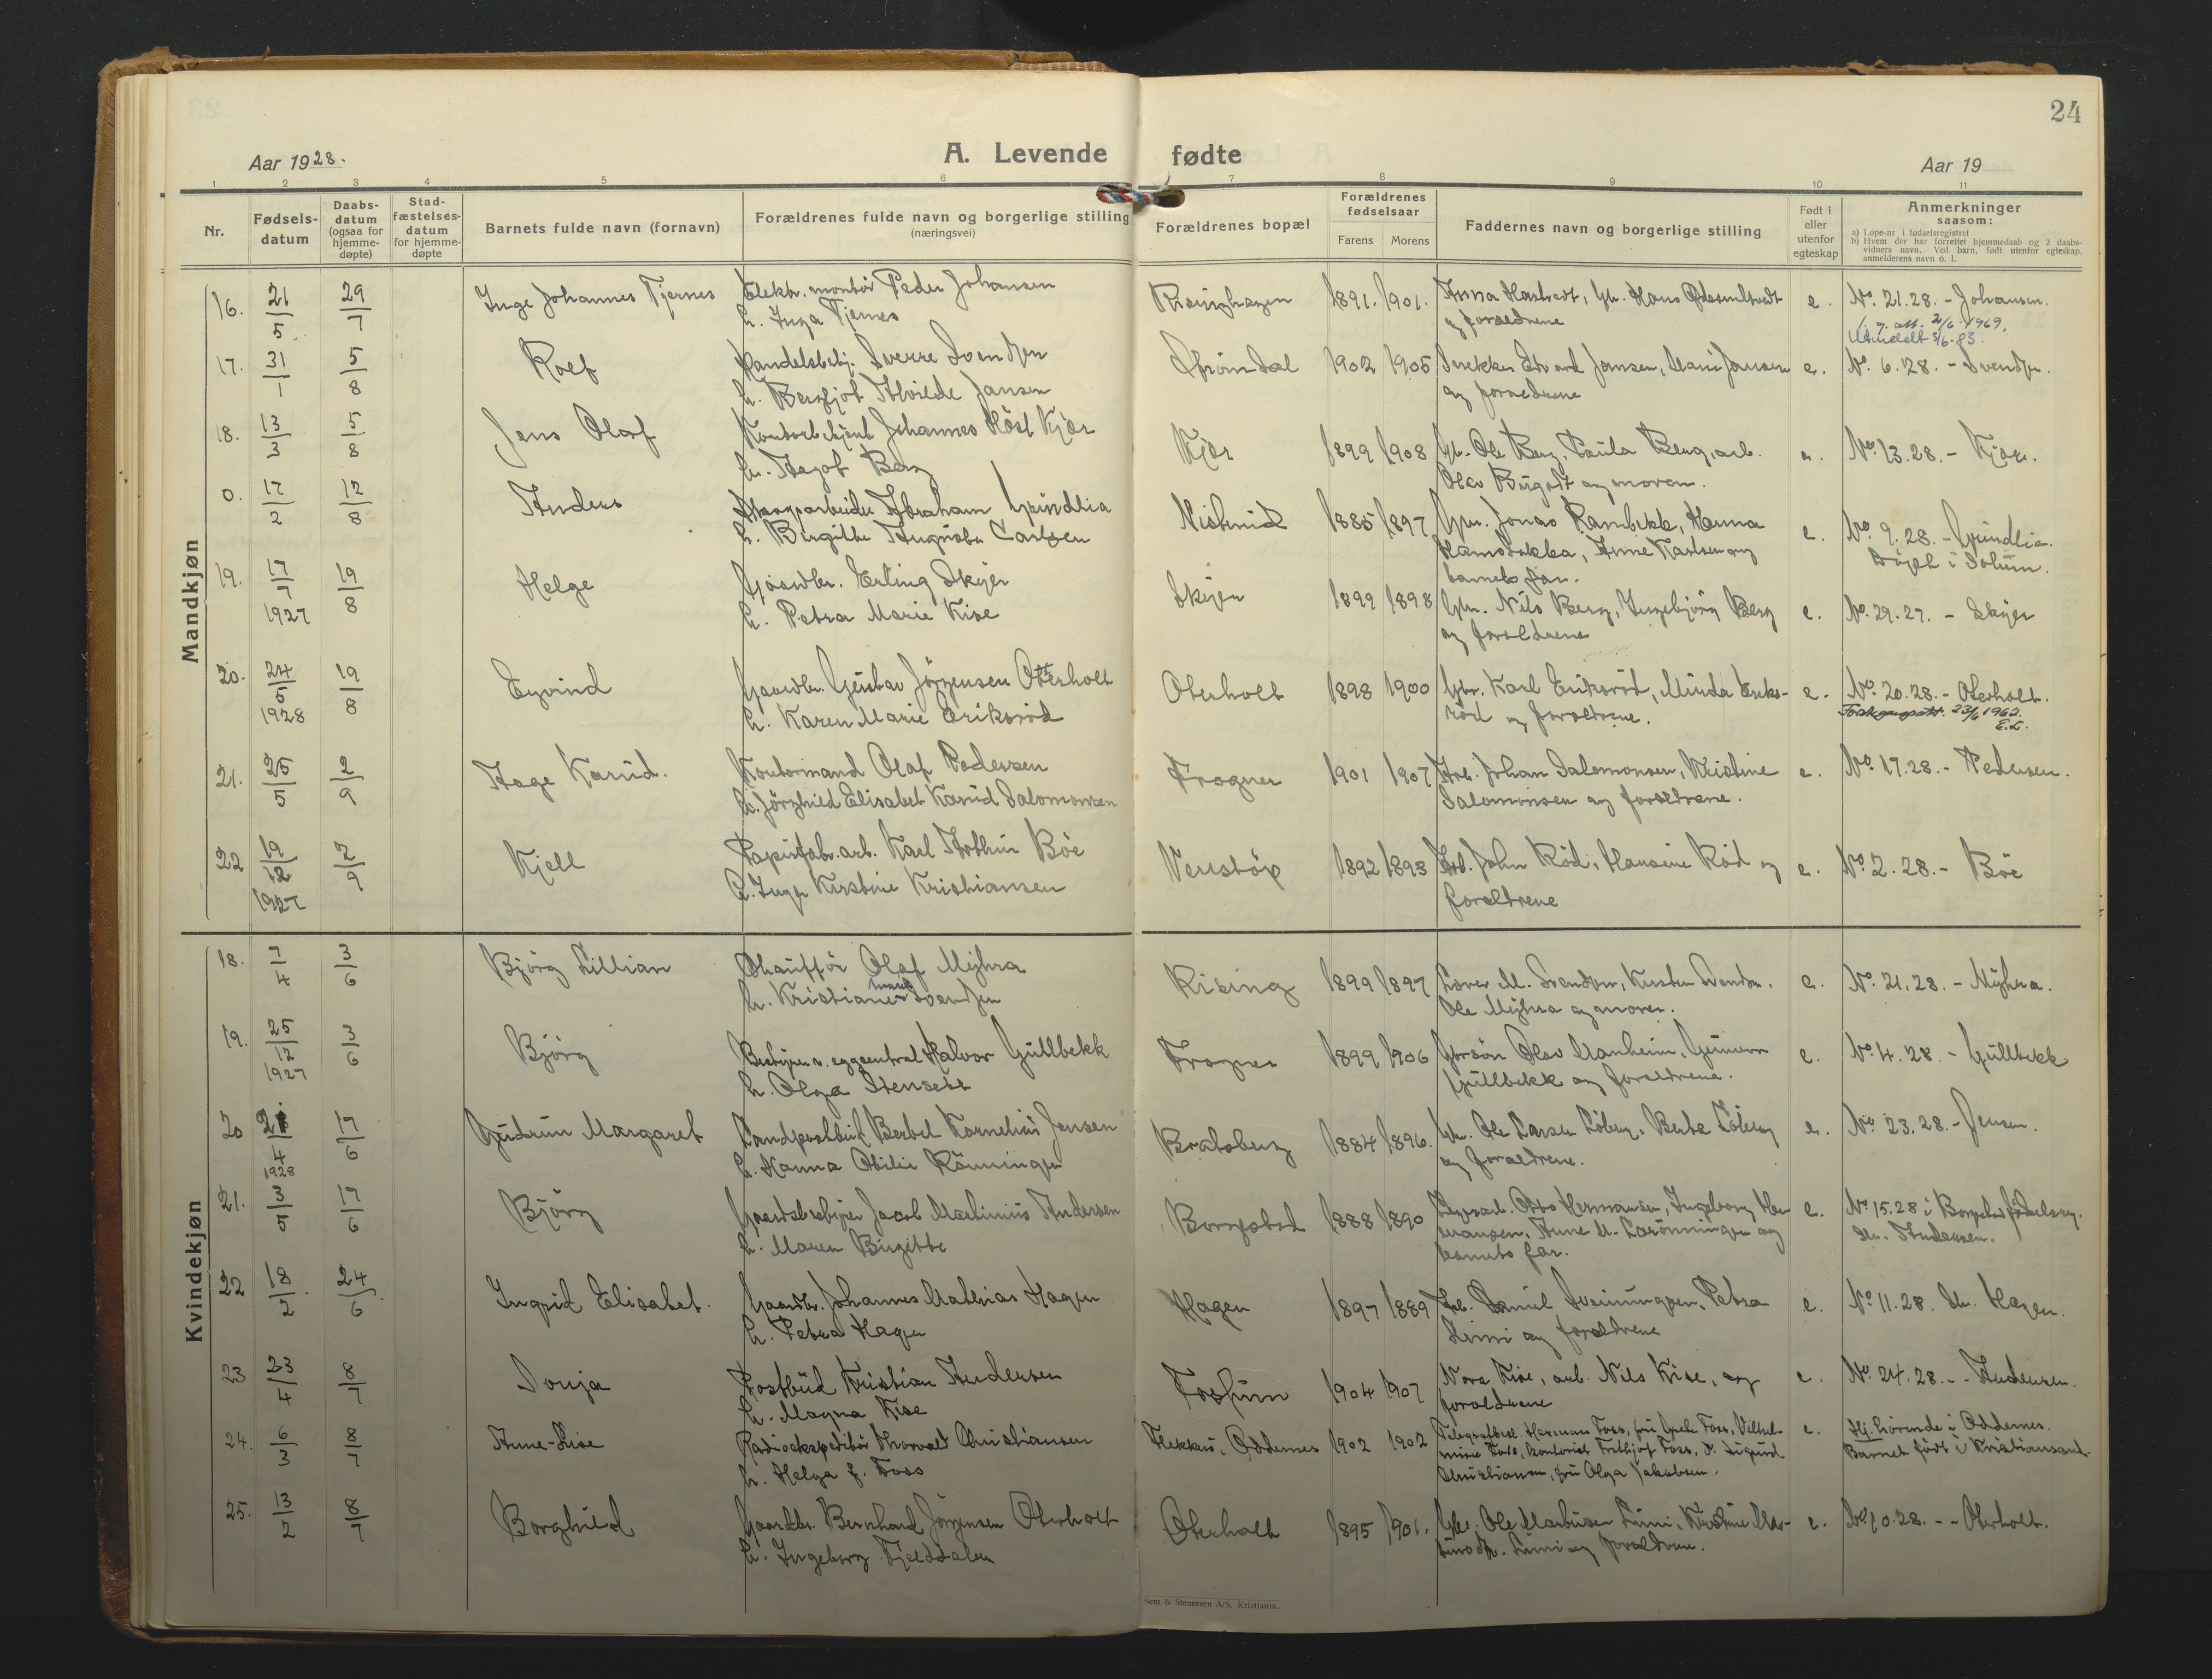 24
Aar 1928.
A. Levende fødte
Aar 19
1 2 3 4 5 6 7 8 9 10 11
Nr.
Fødsels-
datum
Daabs-
datum
(ogsaa for
hjemme-
døpte)
Stad-
fæstelses-
datum
for hjemme-
døpte
Barnets fulde navn (fornavn)
Forældrenes fulde navn og borgerlige stilling
(næringsvei)
Forældrenes bopæl
Forældrenes
fødselsaar
Farens Morens
Faddernes navn og borgerlige stilling
Født i
eller
utenfor
egteskap
Anmerkninger
saasom:
a) Løpe-nr i fødselsregistret
b) Hvem der har forrettet hjemmedaab og 2 daabs-
vidners navn. Ved barn, født utenfor egteskap,
anmelderens navn o. l.
Mandkjøn
16. 21/5 29/7 Inge Johannes Tjernes Elektr. montör Peder Johansen 1891. 1901. e. No. 21.28. - Johansen.
h. Inga Tjernes og forældrene
2/6 1969.
17. 31/1 5/8 Rolf Sverre Svendsen 1902 1905 Edvard Jansen, Marie Jansen e. No. 6.28. - Svendsen.
h. Bergljot Alvilde Jansen og forældrene
18. 13/3 5/8 Jens Olaf Johannes Höst Kjær Kjær 1899 1908 Gbr. Ole Berg, Paula Berg, arb. No. 13.28. - Kjær.
h. Aagot Berg og moren.
0. 17/2 12/8 Anders Skogsarbeider Abraham Grindlia 1885 1897 Gbr. Jonas Rambekk, Hanna e. No. 9.28. - Grindlia.
h. Birgitte Carlsen Anne Karlsen og Döpt i Solum.
barnets far.
19. 17/7 1927 19/8 Helge Gaardbr. Erling Skyer 1899 1898 Gbr. Nils Berg, Ingebjörg Berg e. No. 29.27. - Skyer
h. Petra Marie Kise og forældrene
20. 24/5 1928 19/8 Eyvind Gaardbr. Gustav Jörgensen Oterholt Oterholt 1898 1900 Gbr. Karl Eriksröd, Minda Eriks- e. No. 20.28. - Oterholt.
h. Karen Marie Eriksröd röd og forældrene. 23/6 1962.
E.L.
21. 25/5 2/9 Aage Karud. Kontormand Olaf Pedersen Frogner 1901 1907 Arb. Johan Salomonsen, Kristine e. No. 17.28. - Pedersen.
h. Jörghild Elisabet Karud Salomonsen Salomonsen og forældrene.
22 19/12 1927 2/9 Kjell Papirfabr.arb. Karl Böe Venstöp 1892 1893 Arb. John Röd, Hansine Röd og e. No 2.28. - Böe
h. Inga Kirstine Kristiansen forældrene
Kvindekjøn
18. 7/4 3/6 Björg Lillian Chaufför Olaf Myhra Rising 1899 1897 M. Svendsen, Kirsten Svendsen, e. No. 21.28. - Myhra.
h. Kristiane Svendsen Ole Myhra og moren.
19. 25/12 1927 3/6 Björg Bestyrer v. eggcentral Halvor Gullbekk Frogner 1899 1906 Olav Manheim, e. No. 4.28. - Gullbekk
h. Olga Stenseth Gullbekk og forældrene.
20 4 1928 17/6 Gudrun Margaret Landpostbud Bertel Kornelius Jensen Bratsberg 1884 1896. Gbr. Ole Larsen e. No 23.28. - Jensen.
h. Hanna Otilie Rönningen og forældrene.
21. 3/5 17/6 Björg Gaardsbestyrer Jacob Martinius Andersen Borgestad 1888 1890 Otto Hermansen, Ingeborg Her- e. No 15.28 i Borgestad
h. Maren Birgitte mansen, Anne M. og Andersen.
barnets far.
22 18/2 24/6 Ingrid Elisabet. Gaardbr. Johannes Mathias Hagen Hagen 1897 1889 Arb. Daniel Petra e. No 11.28. Hagen.
h. Petra Hagen og forældrene
23 23/4 8/7 Sonja Postbud Kristian Andersen Fossum 1904 1907 Nora Kise, arb. Nils Kise, og e. No. 24.28. - Andersen.
h. Magna Kise forældrene
24. 6/3 8/7 Anne-Lise Radioekspeditör Thorvald Christiansen Oddernes 1902 1902 Herman Foss, fru Foss, Vilhel- e. Hj. hörende i Oddernes.
h. Helga f. Foss mine Foss, kontorist Fridtjof Foss, Sigurd Barnet födt i Kristiansand.
Christiansen, fru Olga Jakobsen.
25. 13/2 8/7 Borghild Gaardbr. Bernhard Jörgensen Oterholt Oterholt 1895 1901. Gbr. Ole Markusen Limi, Kristine e. No. 10.28. - Oterholt.
h. Ingeborg Fjelddalen Limi og forældrene.
Sem & Stenersen A/S, Kristiania.